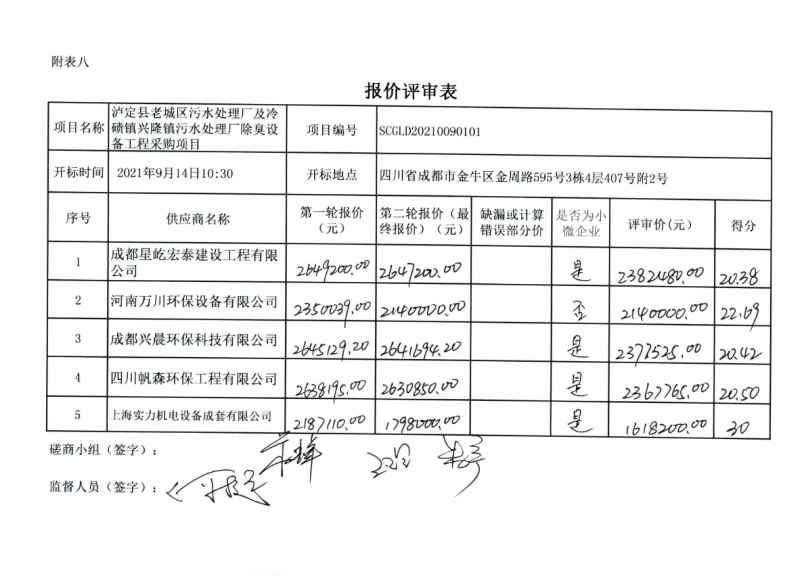 附表八
报价评审表
项目名称 泸定县老城区污水处理厂及冷
碛镇兴隆镇污水处理厂除臭设
备工程采购项目 项目编号 SCGLD20210090101
开标时间 2021年9月14日10:30 开标地点 四川省成都市金牛区金周路595号3栋4层407号附2号
序号 供应商名称 第一轮报价
（元） 第二轮报价（最
终报价）（元） 缺漏或计算
错误部分价 是否为小
微企业 评审价(元) 得分
1 成都星屹宏泰建设工程有限
公司 2649200.00 2647200.00 是 2382480.00 20.38
2 河南万川环保设备有限公司 2350039.00 2140000.00 否 2140000.00 22.69
3 成都兴晨环保科技有限公司 2645129.20 2641694.20 是 2377525.00 20.42
4 四川帆森环保工程有限公司 2638195.00 2630850.00 是 2367765.00 20.50
5 上海实力机电设备成套有限公司 2187110.00 1798000.00 是 1618200.00 30
磋商小组（签字）：
监督人员（签字）：